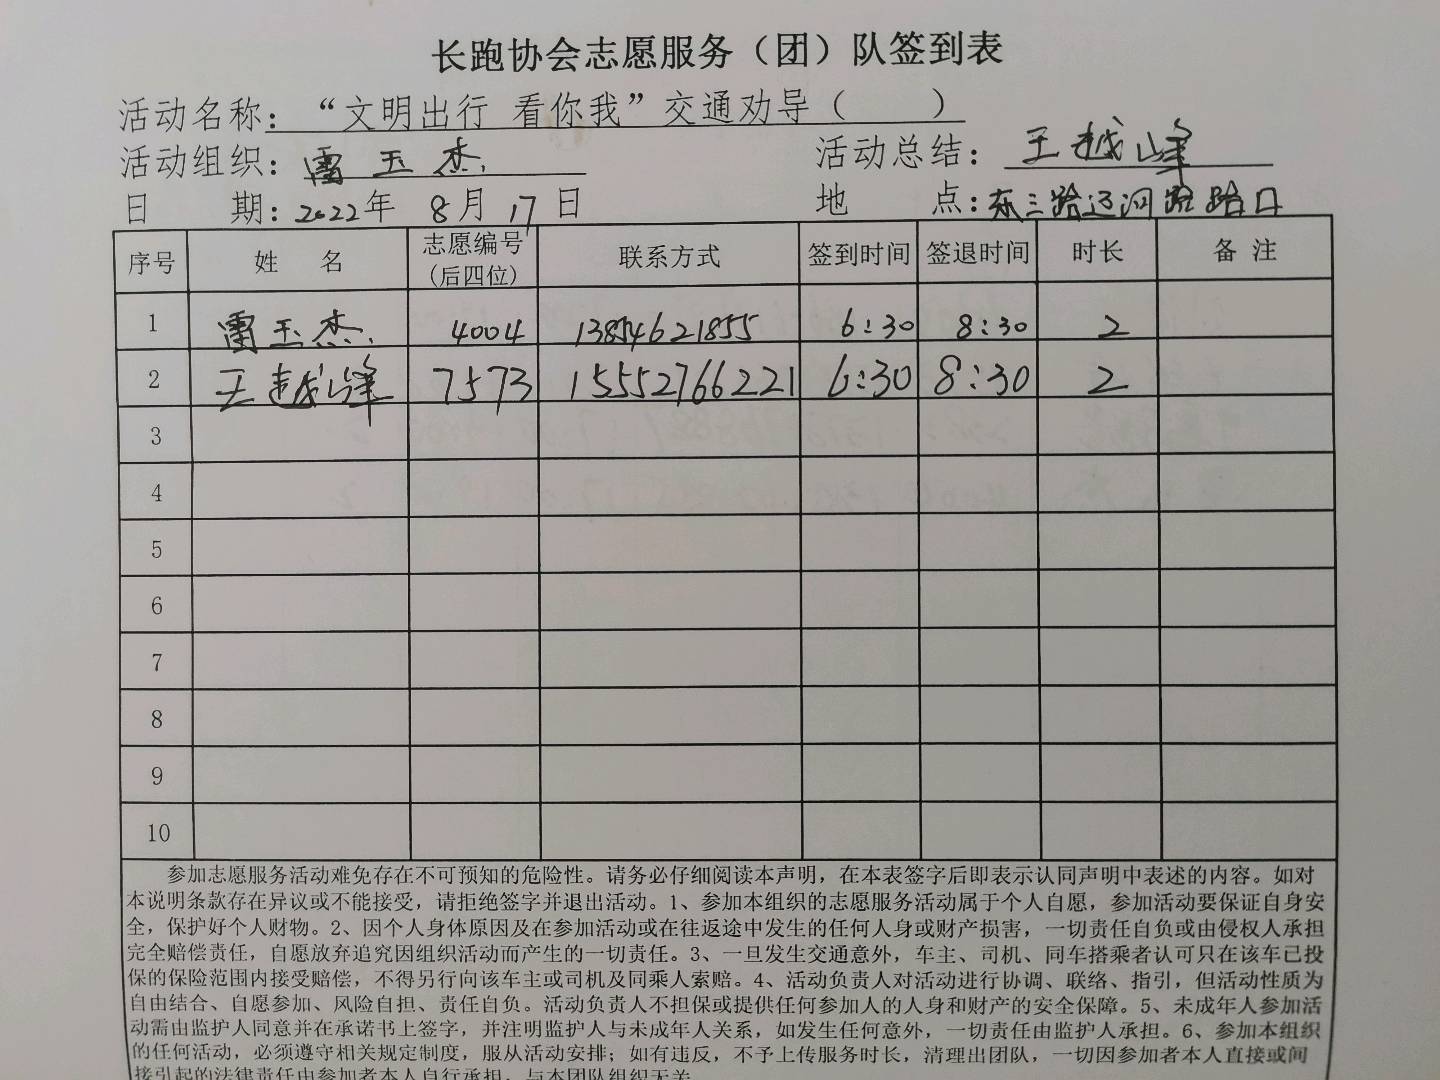 长跑协会志愿服务（团）队签到表
活动名称：“文明出行 看你我”交通劝导（ ）
活动组织：雷玉杰 活动总结：王越峰
日 期：2022年 8月17日 地 点：东三路运河路路口
序号 姓 名 志愿编号（后四位） 联系方式 签到时间 签退时间 时长 备 注
1 雷玉杰 4004 13854621855 6:30 8:30 2
2 王越峰 7573 15552766221 6:30 8:30 2
3
4
5
6
7
8
9
10
参加志愿服务活动难免存在不可预知的危险性。请务必仔细阅读本声明，在本表签字后即表示认同声明中表述的内容。如对
本说明条款存在异议或不能接受，请拒绝签字并退出活动。1、参加本组织的志愿服务活动属于个人自愿，参加活动要保证自身安
全，保护好个人财物。2、因个人身体原因及在参加活动或在往返途中发生的任何人身或财产损害，一切责任自负或由侵权人承担
完全赔偿责任，自愿放弃追究因组织活动而产生的一切责任。3、一旦发生交通意外，车主、司机、同车搭乘者认可只在该车已投
保的保险范围内接受赔偿，不得另行向该车主或司机及同乘人索赔。4、活动负责人对活动进行协调、联络、指引，但活动性质为
自由结合、自愿参加、风险自担、责任自负。活动负责人不担保或提供任何参加人的人身和财产的安全保障。5、未成年人参加活
动需由监护人同意并在承诺书上签字，并注明监护人与未成年人关系，如发生任何意外，一切责任由监护人承担。6、参加本组织
的任何活动，必须遵守相关规定制度，服从活动安排；如有违反，不予上传服务时长，清理出团队，一切因参加者本人直接或间
接引起的法律责任由参加者本人自行承担，与本团队组织无关